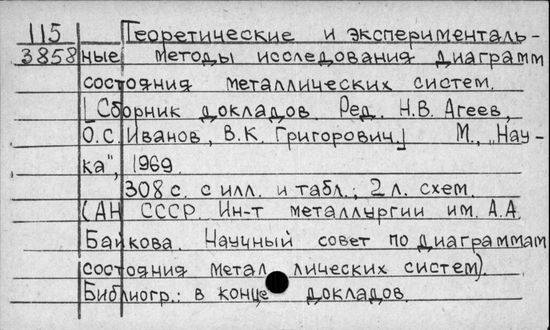 115 Теоретические и эксперименталь-
3858 ные методы исследования диаграмм
состояния металлических систем.
[Сборник докладов. Ред. Н.В. Агеев,
О.С. Иванов, В.К. Григорович.] М., „Нау-
ка", 1969.
308 с. с илл. и табл.; 2 л. схем.
(АН СССР. Ин-т металлургии им. А.А.
Байкова. Научный совет по диаграммам
состояния металлических систем).
Библиогр.: в конце докладов.